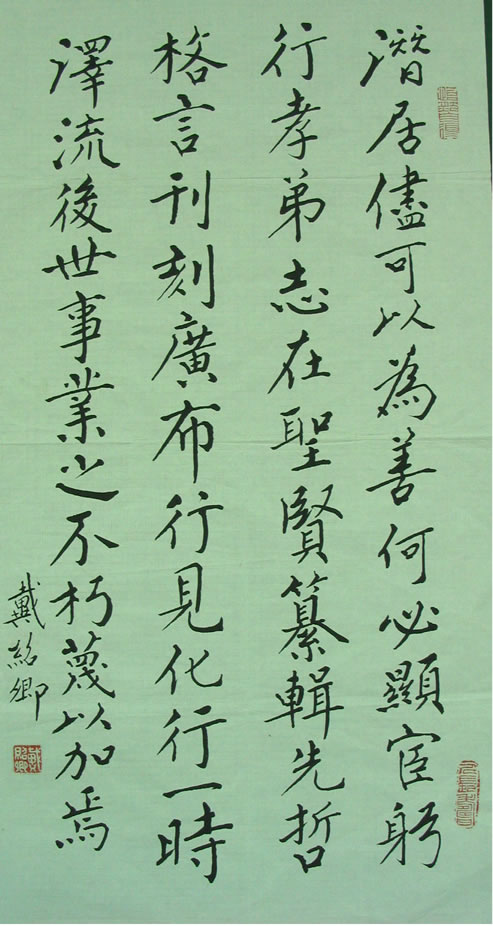 潛居儘可以為善何必顯宦躬
行孝弟志在聖賢纂輯先哲
格言刊刻廣布行見化行一時
澤流後世事業之不朽蔑以加焉
戴紹鄉